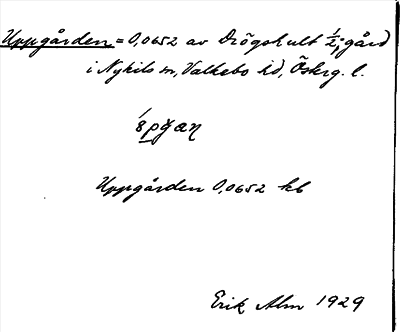 Uppgården = 0,0652 av Drögshult 1/2; gård
i Nykils sn, Valkebo hd, Österg. l.
Uppgården 0,0652 hb
Erik Alm 1929